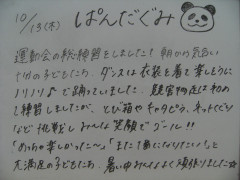 10/13(木) ぱんだぐみ
運動会の総練習をしました！朝から気合い
十分の子どもたち。ダンスは衣装を着て楽しそうに
ノリノリ♪で踊っていました。障害物走は初め
て練習しましたが、とび箱やキャタピラ、ネットくぐり
など挑戦しみんな笑顔でゴール!!
「めっちゃ楽しかった〜」「また1番になりたい!」と
大満足の子どもたち。暑い中みんなよく頑張りました☆